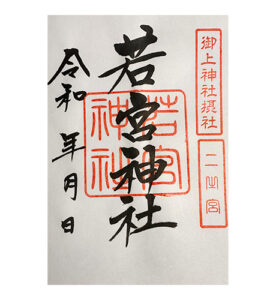 御上神社摂社
二之宮
若宮神社
若宮
神社
令和 年月日